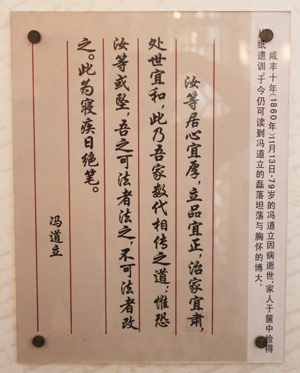 咸丰十年(1860年)11月13日,79岁的冯道立因病逝世,家人于箧中捡得
纸遗训,于今仍可读到冯道立的磊落坦荡与胸怀的博大。
汝等居心宜厚,立品宜正,治家宜肃,
处世宜和,此乃吾家数代相传之道;惟恐
汝等或坠,吾之可法者法之,不可法者改
之。此为寝疾日绝笔。
冯道立